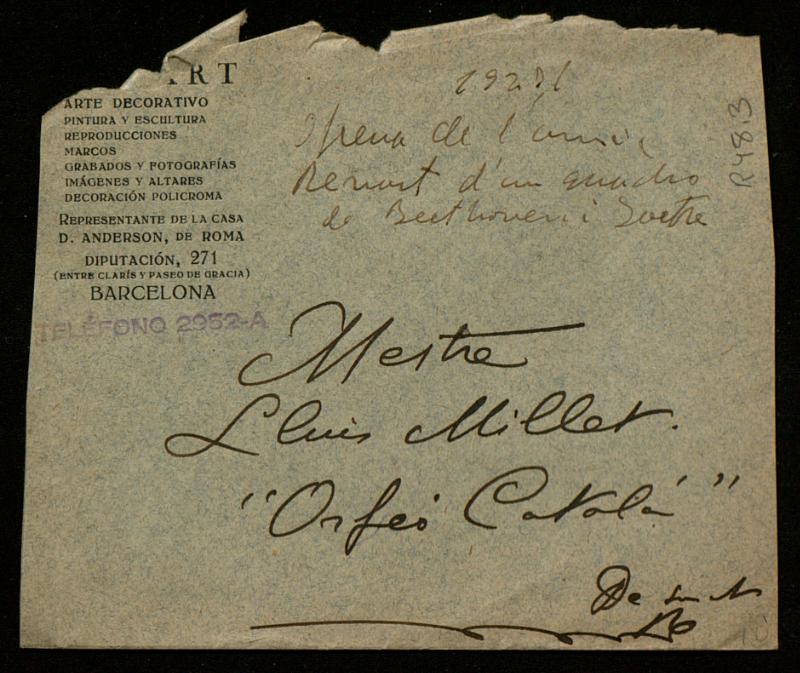 ART
ARTE DECORATIVO
PINTURA Y ESCULTURA
REPRODUCCIONES
MARCOS
GRABADOS Y FOTOGRAFÍAS
IMÁGENES Y ALTARES
DECORACIÓN POLICROMA
REPRESENTANTE DE LA CASA
D. ANDERSON, DE ROMA
DIPUTACIÓN, 271
(ENTRE CLARÍS Y PASEO DE GRACIA)
BARCELONA
TELÉFONO 2952-A
Ofrena de l'amic
Renart d'un quadro
de Beethoven i Goethe
R48.3
Mestre
Lluis Millet.
"Orfeó Català"